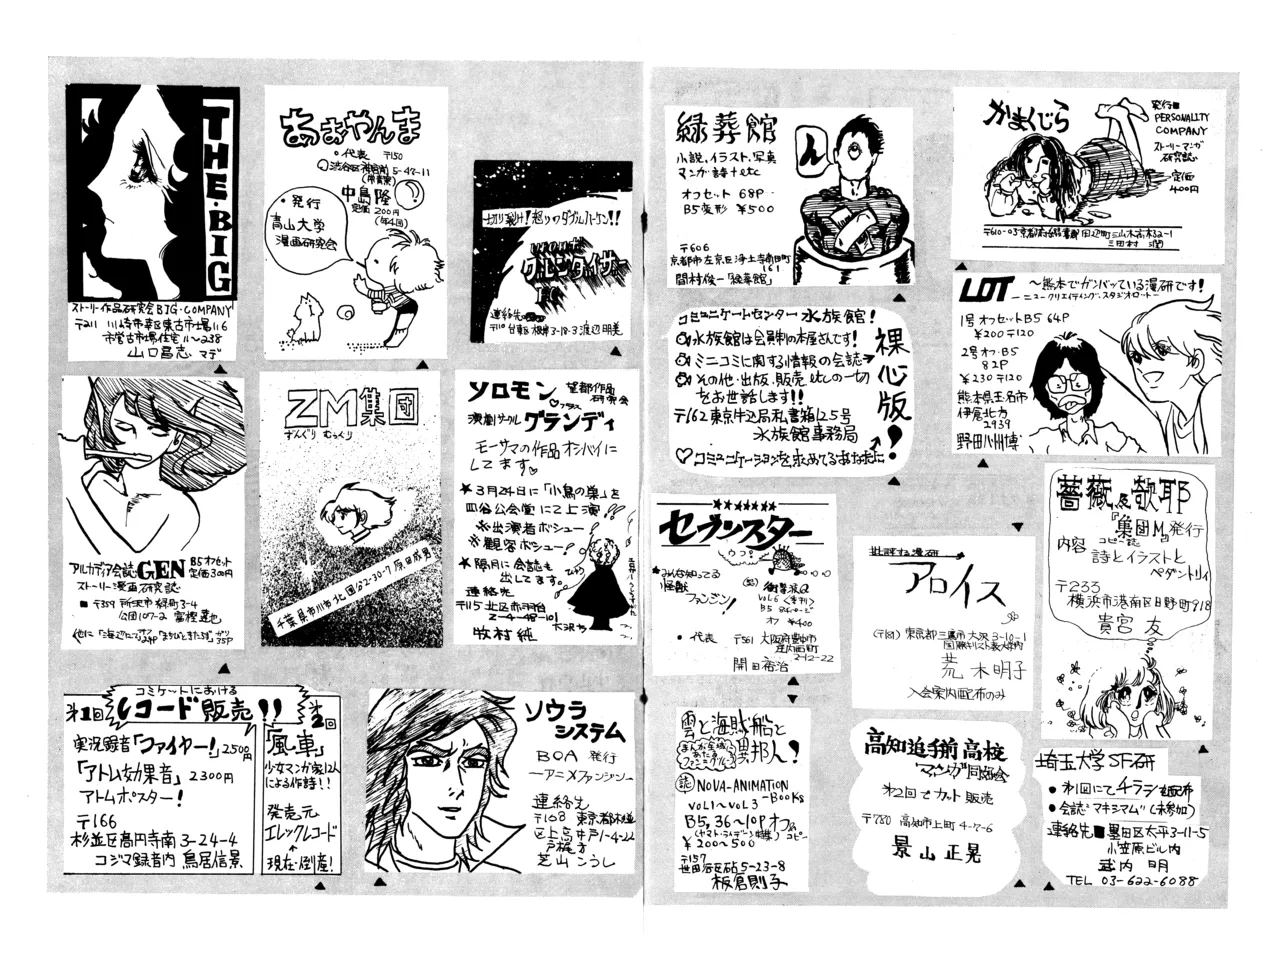 THE・BIG
ストーリー作品研究会 BIG・COMPANY
〒211 川崎市幸区東古市場116
市営古市場住宅11〜238
山口昌志 マデ
あおやんま
・代表 〒150
渋谷区神宮前5-47-11
中島隆
定価200円
(年4回)
・発行
青山大学
漫画研究会
切り裂け!怒りのダブルハーケン!!
グルジタイザー
連絡先
〒110 台東区根岸3-18-3 渡辺明美
アルカディア会誌GEN B5オフセット
定価300円
ストーリー漫画研究誌
■〒359 所沢市緑町3-4
公団107-2 富樫達也
ZM集団
ずんぐり むっくり
千葉県市川市北国分2-30-7 原田成男
ソロモン 望都作品
研究会
プラス
演劇サークル グランディ
モーサマの作品オシバイに
してます♡
★3月24日に「小鳥の巣」を
四谷公会堂にて上演!!
※出演者ボシュー
※観客ボシュー!
★隔月に会誌も
出してます。
連絡先
〒115 北区赤羽台
2-4-48-101
大沢方
牧村純
コミケットにおける
第1回 レコード販売!!
実況録音「ファイヤー!」2500円
「アトム効果音」2300円
アトムポスター!
〒166
杉並区高円寺南3-24-4
コジマ録音内 鳥居信景
第2回
「風車」
少女マンガ家12人
による作詩!!
発売元
エレックレコード
↑
現在・倒産!
ソウラ
システム
BOA 発行
—アニメファンジン—
連絡先
〒168 東京都杉並
区上高井戸1-4-22
戸梶方
芝山こうし
緑葬館
小説、イラスト、写真
マンガ・詩+etc
オフセット 68P
B5変形 ¥500
ん
〒606
京都市左京区浄土寺南田町
161
間村俊一「緑葬館」
かまくじら
発行■
PERSONALITY
COMPANY
ストーリーマンガ
研究誌
定価
400円
〒610-03 京都府綴喜郡田辺町三山木高木32-1
三田村 潤
コミュニケートセンター 水族館!
水族館は会員制の本屋さんです!
ミニコミに関する情報の会誌→
その他・出版・販売 etcの一切
をお世話します!!
〒162 東京牛込局私書箱125号
水族館事務局
♡コミュニケーションを求めてるあなたに!
裸心版!
LOT 〜熊本でガンバッている漫研です!
—ニュークリエイティング・スタジオロット—
1号 オフセットB5 64P
¥200 〒120
2号 オフ・B5
82P
¥230 〒120
熊本県玉名市
伊倉北方
2939
野田八州博
★★★★★★★
セブンスター
ウっ?
★みんな知ってる
怪獣
ファンジン!
(誌)衝撃波Q
VOL6 <季刊>
B5 84ページ
オフ ¥400
・代表 〒561 大阪府豊中市
庄内西町
2-12-22
開田裕治
批評する漫研
アロイス
(〒181) 東京都三鷹市大沢3-10-1
国際キリスト教大学内
荒木明子
入会案内配布のみ
薔薇及欹耶
『集団M』発行
コピー誌
内容 詩とイラストと
ペダントリィ
〒233
横浜市港南区日野町918
貴宮 友
雲と海賊船と
異邦人!
(誌)NOVA-ANIMATION
-BOOKS
VOL1〜VOL3
B5, 36〜10P オフ&
コピー
¥200〜500
〒157
世田谷区砧5-23-8
板倉則子
高知追手前高校
マンガ同好会
第2回でカット販売
〒780 高知市上町4-7-6
景山正晃
埼玉大学SF研
●第1回にてチラシ配布
●会誌"マキシマム"(未参加)
連絡先■墨田区太平3-11-5
小笠原ビル内
武内 明
TEL 03-622-6088